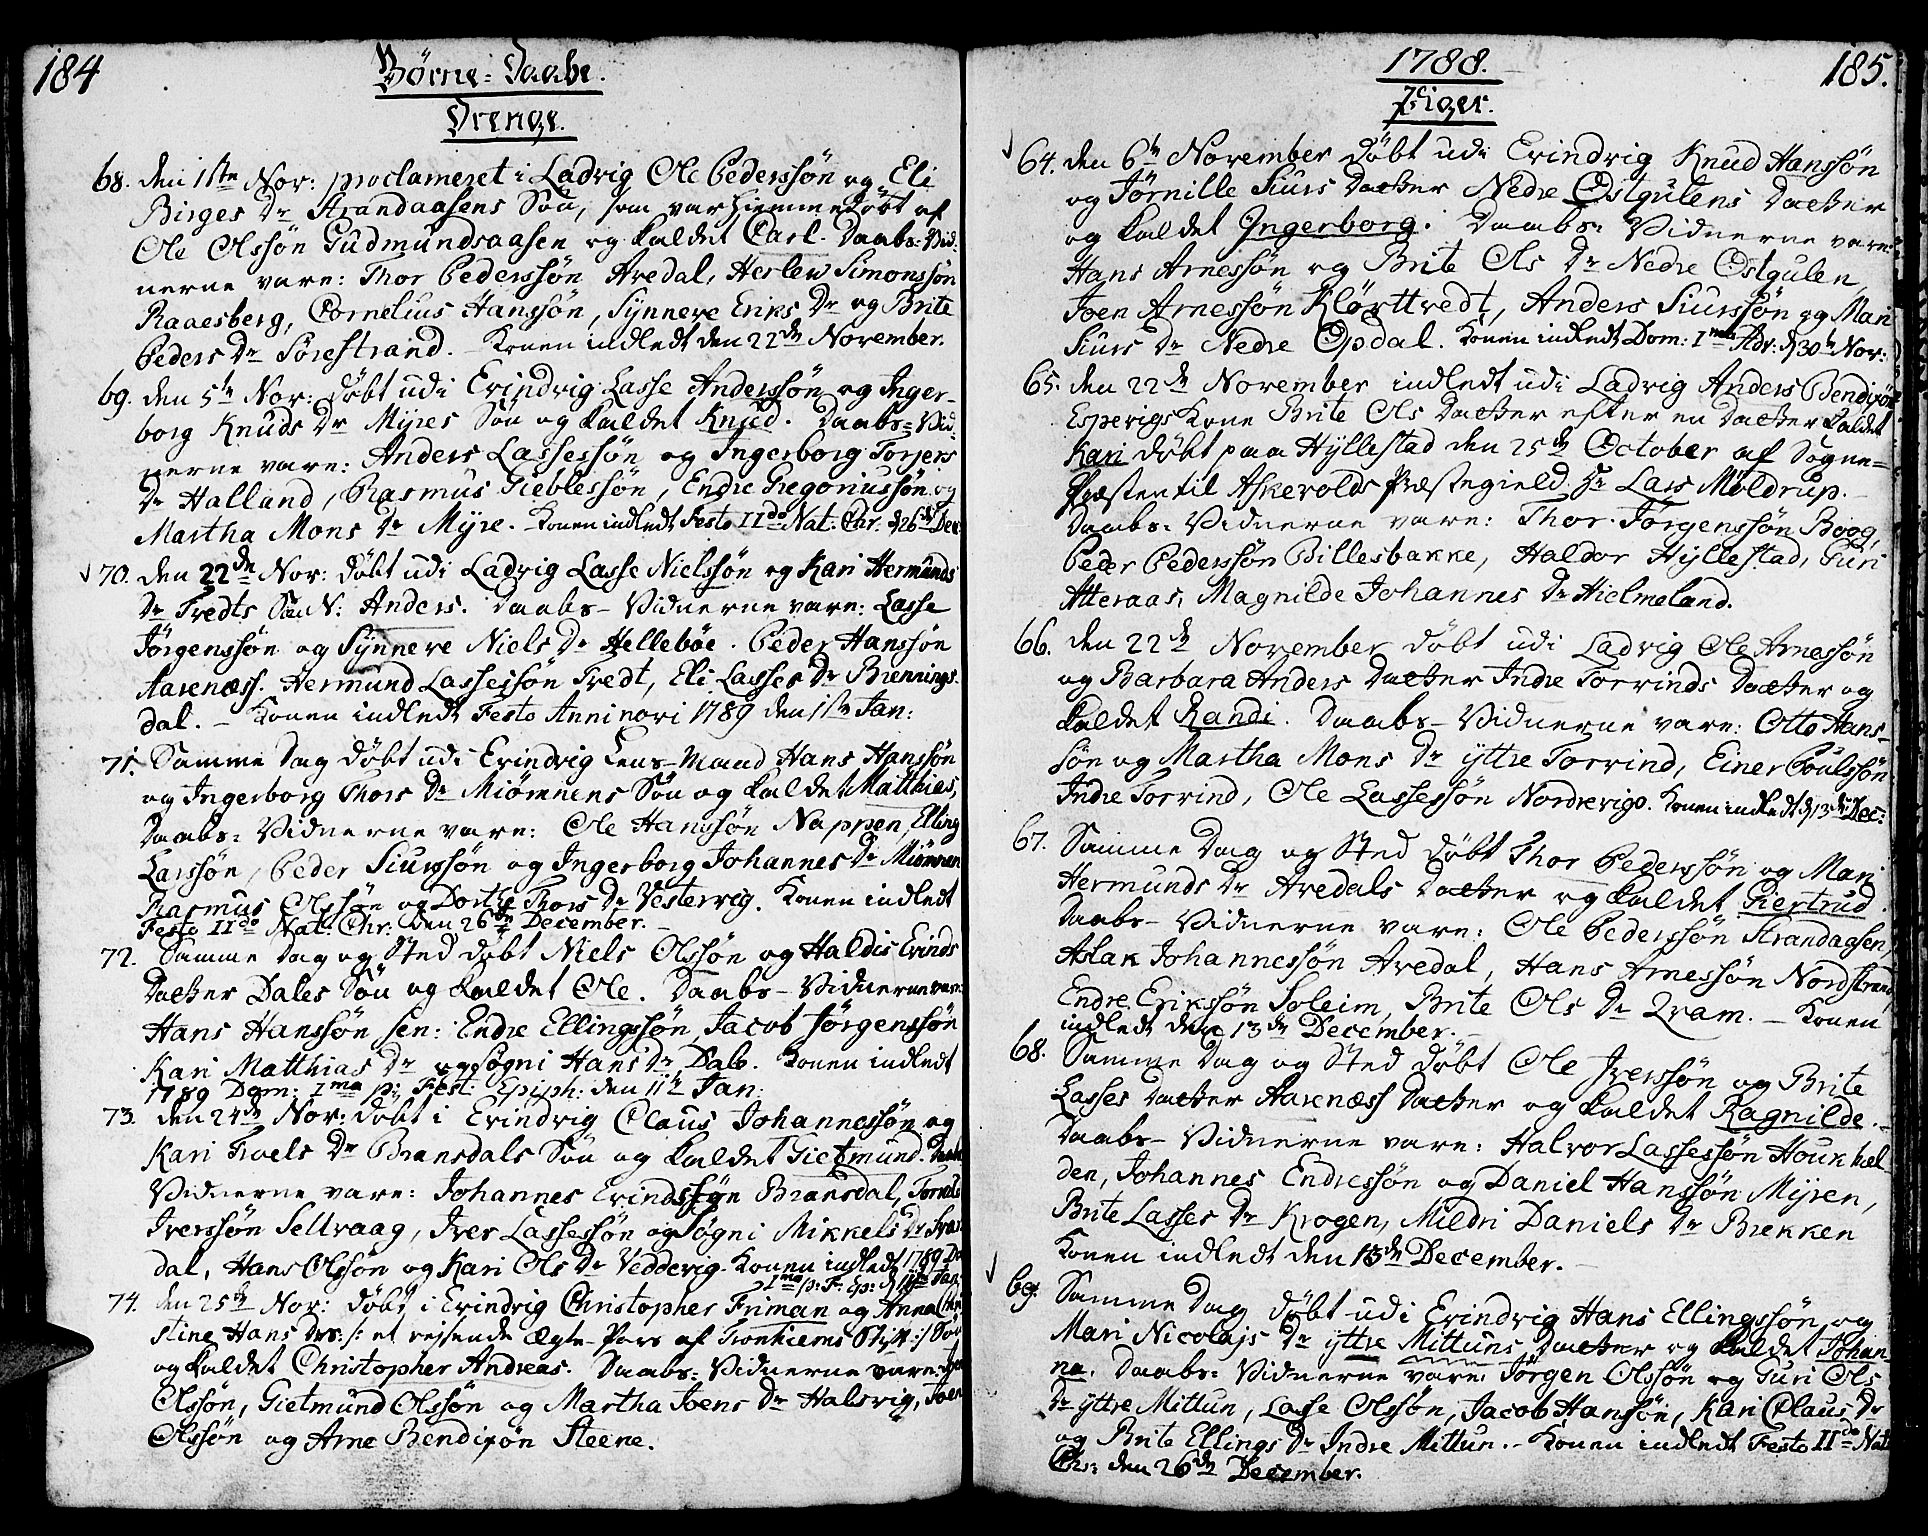 184
Börne-Daabe.
Drenge.
68. den 1ste Nov: proclameret i Ladvig Ole Pederssön og Eli
Birges Dr Strandaasens Sön, som var hiemmedöbt af
Ole Olssön Gudmundsaasen og kaldet Carl. Daabs-Vid-
nerne vare: Thor Pederssön Avedal, Herlew Simonssön
Raaesberg, Cornelius Hanssön, Synneve Eriks Dr og Brite
Peders Dr Sörestrand. - Konen indledt den 22de November.
69. den 5te Nov: döbt udi Evindvig Lasse Anderssön og Inger-
borg Knuds Dr Myres Sön og kaldet Knud. Daabs-Vid-
nerne vare: Anders Lassessön og Ingerborg Torjers
Dr Halland, Rasmus Gieblessön, Endre Gregoriussön og
Martha Mons Dr Myre. - Konen indledt Festo IIdo Nat: Chr. d 26de Dec
70. den 22de Nov: döbt udi Ladvig Lasse Nielssön og Kari Hermunds
Dr Tredts Sön N: Anders. Daabs-Vidnerne vare: Lasse
Jörgenssön og Synneve Niels Dr Helleböe. Peder Hanssön
Aarenæss. Hermund Lassessön Tredt, Eli Lasses Dr Brennings-
dal. - Konen indledt Festo Anni novi 1789 den 1ste Jan:
71. Samme Dag döbt udi Evindvig Lens-Mand Hans Hanssön
og Ingerborg Thors Dr Miömnens Sön og kaldet Matthies,
Daabs-Vidnerne vare: Ole Hanssön Nappen, Elling
Larssön, Peder Siurssön og Ingerborg Johannes Dr Miömnen
Rasmus Olssön og Dorthe Thors Dr Vestervig. Konen indledt
Festo IIdo Nat: Chr: den 26de December.
72. Samme Dag og Sted döbt Niels Olssön og Haldis Evinds
Datter Dales Sön og kaldet Ole. Daabs-Vidnerne vare:
Hans Hanssön sen: Endre Ellingssön, Jacob Jörgenssön
Kari Matthias Dr og Sögni Hans Dr Dale. Konen indledt
1789 Dom: Ima p: Fest: Epiph: den 11te Jan:
73. den 24de Nov: döbt i Evindvig Claus Johannessön og
Kari Troels Dr Bransdals Sön og kaldet Gietmund. Daabs
Vidnerne vare: Johannes Evindssön Bransdal,
Iverssön Sellvaag, Iver Lassessön og Sögni Mikkels Dr
dal, Hans Olssön og Kari Ols Dr Veddevig. Konen indledt 1789 Do
Ima p: F. Ep: d 11te Jan:
74. den 25de Nov: döbt i Evindvig Christopher Friman og Anna Chri
stine Hans Drs: /: et reisende Ægte-Par af Tronhiems Stift :/ Sön
og kaldet Christopher Andreas. Daabs-Vidnerne vare:
Olssön, Gietmund Olssön og Martha Joens Dr Halsvig, Joen
Olssön og Arne Bendixön Steene.
1788.
185.
Piger.
64. den 6te November döbt udi Evindvig Knud Hanssön
og Jörnille Siurs Datter Nedre Ostgulens Datter
og kaldet Ingerborg. Daabs-Vidnerne vare:
Hans Arnessön og Brite Ols Dr Nedre Ostgulen,
Joen Arnessön Klörttvedt, Anders Siurssön og Mari
Siurs Dr Nedre Opdal. Konen indledt Dom: Ima Adv: d 30te Nov:
65. den 22de November indledt udi Ladvig Anders Bendixön
Espevigs Kone Brite Ols Datter efter en Datter kaldet
Kari döbt paa Hyllestad den 25de October af Sogne-
Præsten til Askevolds Præstegield Hr Lars Moldrup.
Daabs-Vidnerne vare: Thor Jörgenssön Boog,
Peder Pederssön Billesbakke, Haldor Hyllestad, Guri
Atteraas, Magnilde Johannes Dr Hielmeland.
66. den 22de November döbt udi Ladvig Ole Arnessön
og Barbara Anders Datter Indre Torvinds Datter og
kaldet Randi. Daabs-Vidnerne vare: Otto Hans-
sön og Martha Mons Dr yttre Torvind, Einer Poulssön
Indre Torvind, Ole Lassessön Nordrevigs. Konen indledt d 13de Dec:
67. Samme Dag og Sted döbt Thor Pederssön og Mari
Hermunds Dr Avedals Datter og kaldet Giertrud.
Daabs-Vidnerne vare: Ole Pederssön Strandaasen,
Aslak Johannessön Avedal, Hans Arnessön Nordstrand,
Endre Erikssön Soleim, Brite Ols Dr Qvam. - Konen
indledt den 13de December.
68. Samme Dag og Sted döbt Ole Iverssön og Brite
Lasses Datter Aarenæss Datter og kaldet Ragnilde.
Daabs-Vidnerne vare: Halvor Lassessön Hounhæl
den, Johannes Endressön og Daniel Hanssön Myren,
Brite Lasses Dr Krogen, Mildri Daniels Dr Brekken
Konen indledt den 13de December.
69. Samme Dag döbt udi Evindvig Hans Ellingssön og
Mari Nicolajs Dr yttre Mittuns Datter og kaldet Johan-
na. Daabs-Vidnerne vare: Jörgen Olssön og Guri Ols
Dr yttre Mittun, Lasse Olssön, Jacob Hanssön, Kari Claus Dr
og Brite Ellings Dr Indre Mittun. - Konen indledt Festo IIdo Nat
Chr: den 26de December.